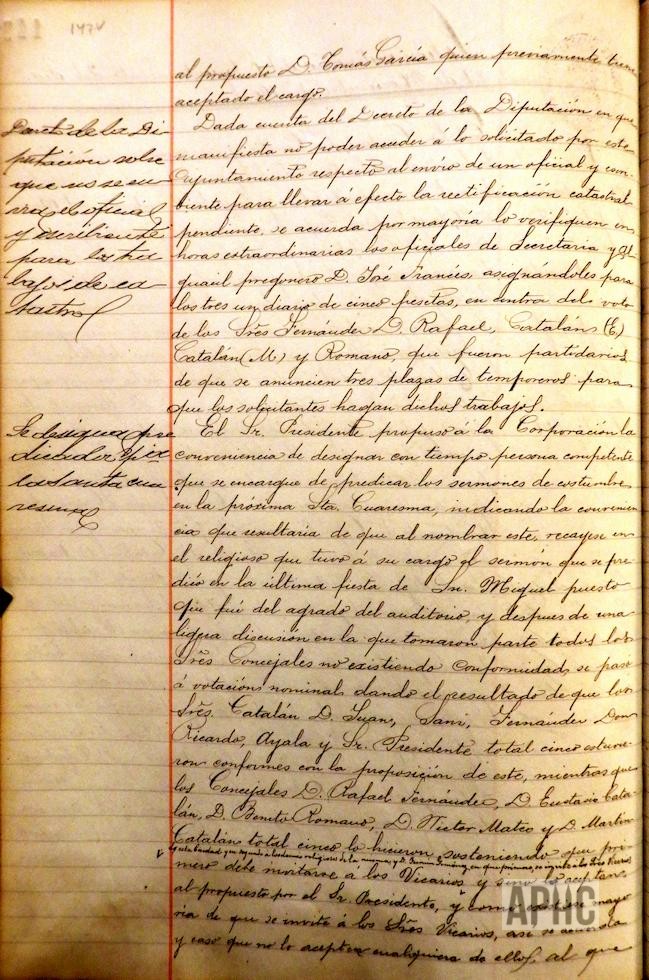 147v
al propuesto D. Tomás García quien previamente tiene
aceptado el cargo.
Dada cuenta del Decreto de la Diputación en que
manifiesta no poder acceder á lo solicitado por este
Ayuntamiento respecto al envío de un oficial y escri-
biente para llevar á efecto la rectificación catastral
pendiente, se acuerda por mayoría lo verifiquen en
horas extraordinarias los oficiales de Secretaria y Al-
guacil pregonero D. José Francés, asignándoles para
los tres un diario de cinco pesetas, en contra del voto
de los Sres Fernández D. Rafael, Catalán (E)
Catalán (M) y Romano, que fueron partidarios
de que se anuncien tres plazas de temporeros para
que los solicitantes hagan dichos trabajos.
El Sr. Presidente propuso á la Corporación la
conveniencia de designar con tiempo persona competente
que se encargue de predicar los sermones de costumbre
en la próxima Sta. Cuaresma, indicando la convenien-
cia que resultaria de que al nombrar este, recayese en
el religioso que tuvo á su cargo el sermón que se pre-
dicó en la última fiesta de Sn. Miguel puesto
que fué del agrado del auditorio, y despues de una
ligera discusión en la que tomaron parte todos los
Sres Concejales no existiendo conformidad, se pasó
á votación nominal dando el resultado de que los
Sres. Catalán D. Juan, Sanz, Fernández Don
Ricardo, Ayala y Sr. Presidente total cinco estuvie-
ron conformes con la proposición de este, mientras que
los Concejales D. Rafael Fernández, D. Eustasio Cata-
lán, D. Benito Romano, D. Victor Mateo y D. Martín
Catalán total cinco lo hicieron sosteniendo que pri-
mero debe invitarse á los Vicarios y sinó lo aceptan
al propuesto por el Sr. Presidente, y como mayo-
ria de que se invite á los Sres Vicarios, asi se acuerda
y caso que no lo acepten cualquiera de ellos, al que
Decreto de la Di-
putación sobre
que no se en-
vía el oficial
y escribiente
para los tra-
bajos de ca-
tastro
Se designa pre-
dicador pª
la Santa cua-
resma
APHC